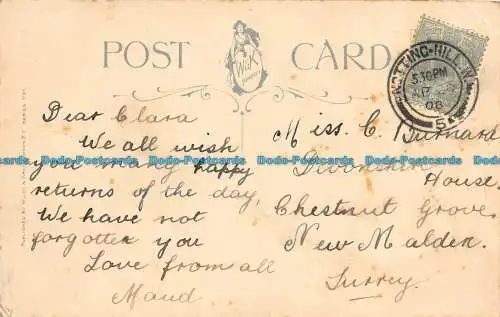 POST CARD
W & K
LONDON
NOTTING-HILL.W
5.30PM
17
08
5
Dear Clara
We all wish
you many happy
returns of the day,
We have not
forgotten you
Love from all
Maud
Miss. C. Burnard
Devonshire
House,
Chestnut Grove,
New Malden.
Surrey.
Dodo-Postcards Dodo-Postcards Dodo-Postcards Dodo-Postcards Dodo-Postcards